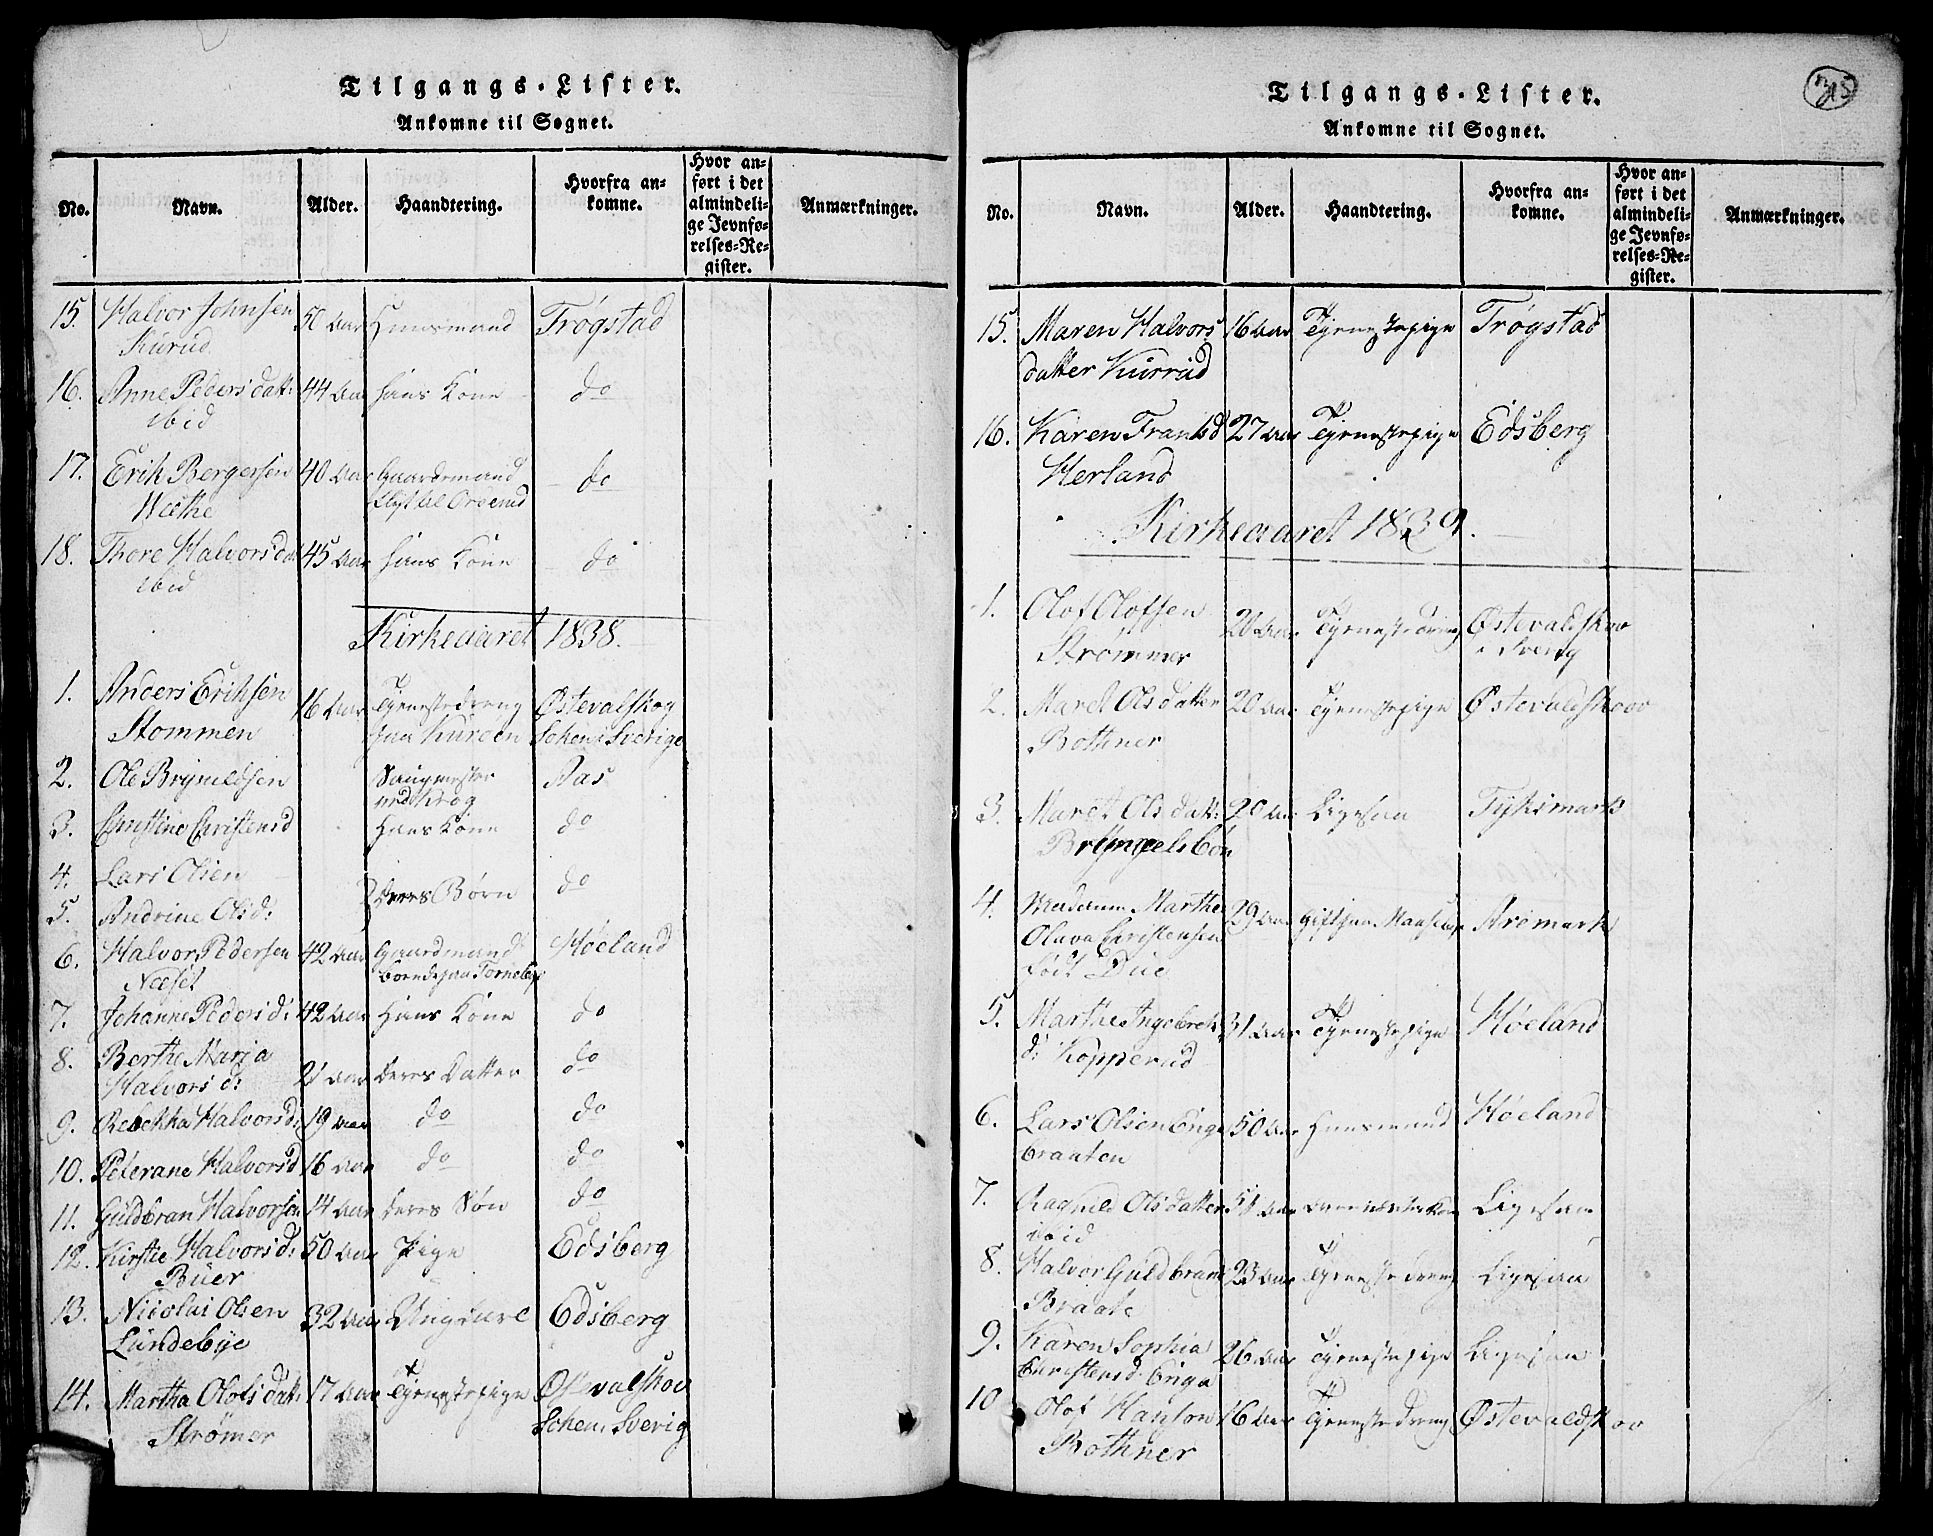 Tilgangs-Lister.
Ankomne til Sognet.
No. Navn. Alder. Haandtering. Hvorfra ankomne. Hvor anført i det almindelige Jevnførelses-Register. Anmærkninger.
15. Halvor Johnsen 50 Aar Huusmand Trøgstad
Kurud
16. Anne Peders datt: 44 Aar hans Kone do
ibid
17. Erik Bergersen 40 Aar Gaardmand do
18. Thore Halvorsdat 45 Aar hans Kone do
ibid
Kirkeaaret 1838.
1. Anders Eriksen 16 Aar Tjenestedreng Østevalskog
Stommen paa Kureen Soken i Sverige
2. Ole Brynildsen Saugmester Aas
ved Krog
3. Christine Christensd hans Kone do
4. Lars Olsen
2 deres Børn do
5. Andrine Olsd:
6. Halvor Pedersen 42 Aar Gaardmand Høeland
Næset boende paa Torneby
7. Johanne Peders d: 42 Aar hans Kone do
8. Berthe Maria
Halvors d: 21 Aar deres Datter do
9. Rebekka Halvorsd: 19 Aar do do
10. Peterane Halvorsd 16 Aar do do
11. Guldbran Halvorsen 14 Aar deres Søn do
12. Kirstie Halvors d: 50 Aar Pige Edsberg
Buer
13. Nicolai Olsen 32 Aar Ungkarl Edsberg
Lundebye
14. Martha Olofs datt: 17 Aar Tjenestepige Østevalskov
Strømer Soken i Sverig
Tilgangs-Lister.
Ankomne til Sognet.
315
No. Navn. Alder. Haandtering. Hvorfra ankomne. Hvor anført i det almindelige Jevnførelses-Register. Anmærkninger.
15. Maren Halvors 16 Aar Tjenestepige Trøgstad
datter Kurrud
16. Karen Frantsd 27 Aar Tjenestepige Edsberg
Herland
Kirkeaaret 1839.
1. Olof Olofsen 20 Aar Tjenestedreng Østevaldskov
Strømmer i Sverig
2. Maret Olsdatter 20 Aar Tjenestepige Østevaldskov
Bothner
3. Maret Olsdatt: 20 Aar Ligesaa
4. Madam Marthe 29 Aar Aremark
Olava Christensen
født Due
5. Marthe Ingebrets 31 Aar Tjenestepige Høeland
d: Kopperud
6. Lars Olsen Enge 50 Aar Huusmand Høeland
braaten
7. Ragnild Olsdatter 51 Aar Ligesaa
ibid
8. Halvor Guldbrand 23 Aar Tjenestedreng Ligesaa
Braate
9. Karen Sophia 26 Aar Tjenestepige Ligesaa
Christensd: Enga
10 Olof Hanson 16 Aar Tjenestedreng Østevaldskov
Bothner